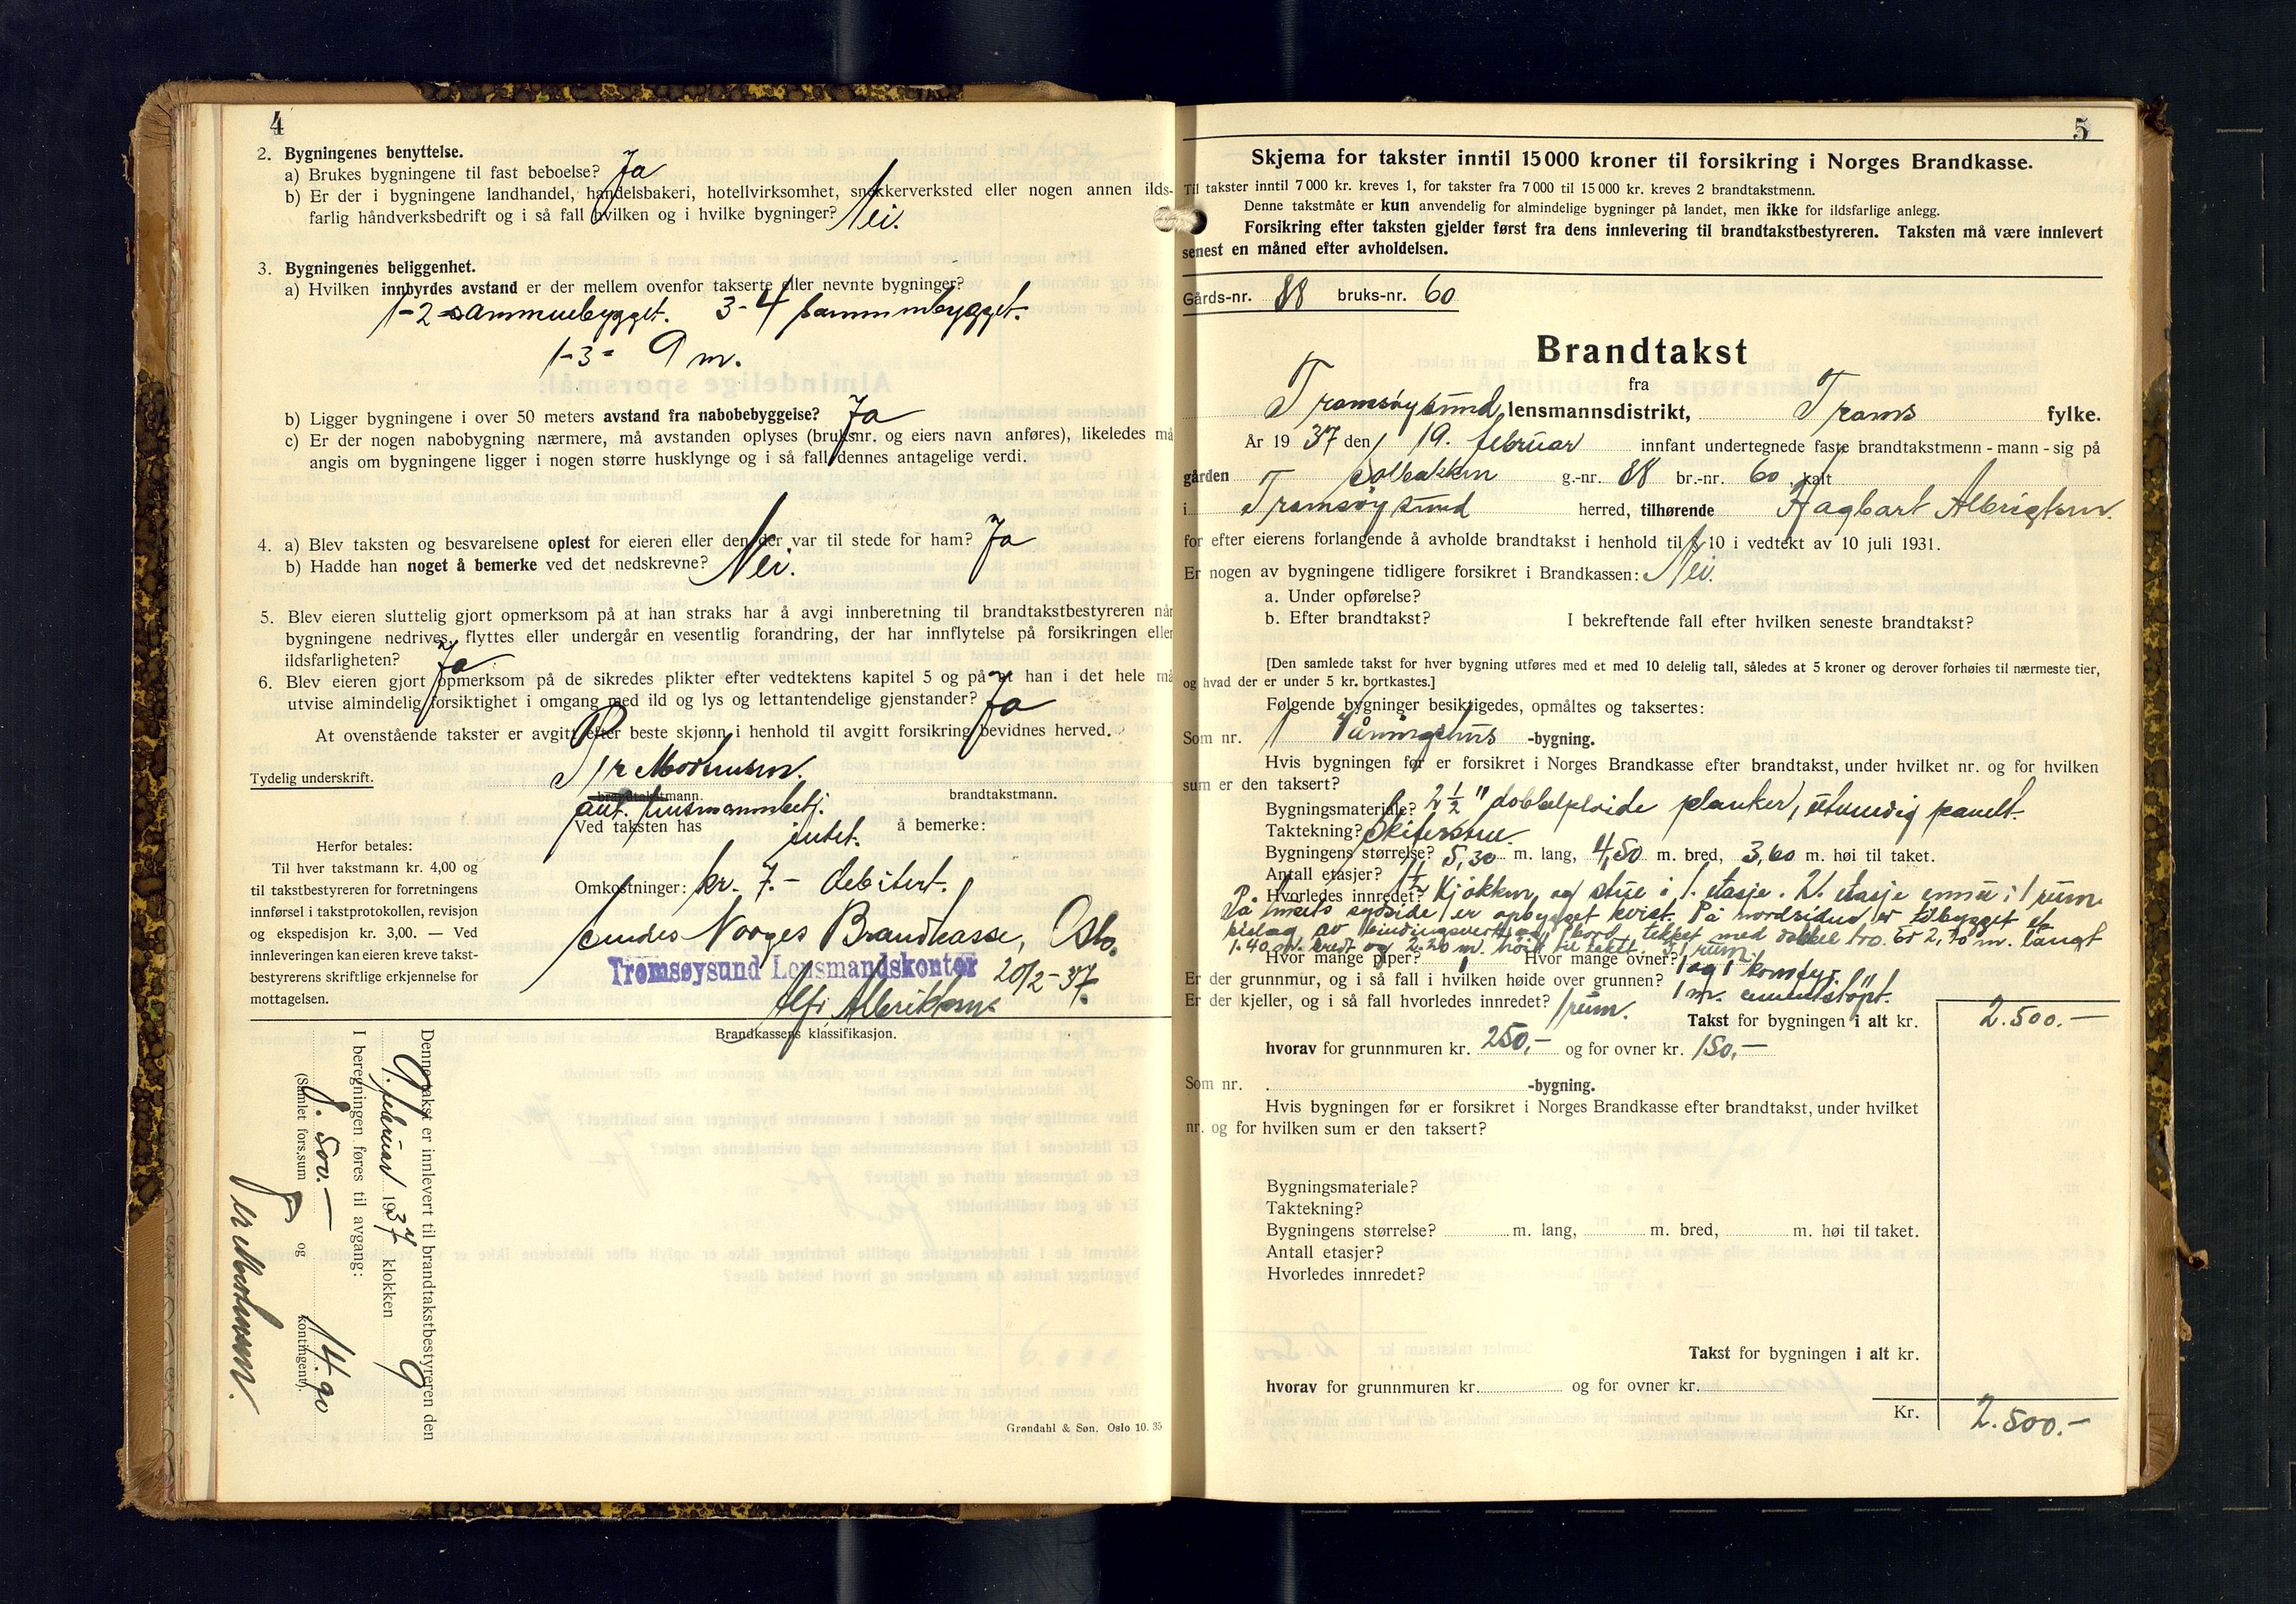 4
2. Bygningenes benyttelse.
a) Brukes bygningene til fast beboelse? Ja
b) Er der i bygningene landhandel, handelsbakeri, hotellvirksomhet, snekkerverksted eller nogen annen ilds-
farlig håndverksbedrift og i så fall hvilken og i hvilke bygninger? Nei.
3. Bygningenes beliggenhet.
a) Hvilken innbyrdes avstand er der mellem ovenfor takserte eller nevnte bygninger?
1-2 sammuebygget. 3-4 sammenbygget.
1-3 = 9 m.
b) Ligger bygningene i over 50 meters avstand fra nabobebyggelse? Ja
c) Er der nogen nabobygning nærmere, må avstanden oplyses (bruksnr. og eiers navn anføres), likeledes må
angis om bygningene ligger i nogen større husklynge og i så fall dennes antagelige verdi.
4. a) Blev taksten og besvarelsene oplest for eieren eller den der var til stede for ham? Ja
b) Hadde han noget å bemerke ved det nedskrevne? Nei.
5. Blev eieren sluttelig gjort opmerksom på at han straks har å avgi innberetning til brandtakstbestyreren når
bygningene nedrives, flyttes eller undergår en vesentlig forandring, der har innflytelse på forsikringen eller
ildsfarligheten? Ja
6. Blev eieren gjort opmerksom på de sikredes plikter efter vedtektens kapitel 5 og på at han i det hele må
utvise almindelig forsiktighet i omgang med ild og lys og lettantendelige gjenstander? Ja
At ovenstående takster er avgitt efter beste skjønn i henhold til avgitt forsikring bevidnes herved.
Tydelig underskrift.
brandtakstmann. brandtakstmann.
Ved taksten has intet. å bemerke:
Herfor betales:
Til hver takstmann kr. 4,00 og
til takstbestyreren for forretningens
innførsel i takstprotokollen, revisjon
og ekspedisjon kr. 3,00. — Ved
innleveringen kan eieren kreve takst-
bestyrerens skriftlige erkjennelse for
mottagelsen.
Omkostninger: kr. 7.- debitert.
Sendes Norges Brandkasse, Oslo.
Tromsøysund Lensmandskontor 20/2-37.
Alf Albriktsen
Brandkassens klassifikasjon.
Denne takst er innlevert til brandtakstbestyreren den
9. februar 1937 klokken 9
I beregningen føres til avgang:
8.500.- 14.90
(Samlet fors.sum og kontingent).
Grøndahl & Søn, Oslo 10. 35
5
Skjema for takster inntil 15 000 kroner til forsikring i Norges Brandkasse.
Til takster inntil 7 000 kr. kreves 1, for takster fra 7 000 til 15 000 kr. kreves 2 brandtakstmenn.
Denne takstmåte er kun anvendelig for almindelige bygninger på landet, men ikke for ildsfarlige anlegg.
Forsikring efter taksten gjelder først fra dens innlevering til brandtakstbestyreren. Taksten må være innlevert
senest en måned efter avholdelsen.
Gårds-nr. 88 bruks-nr. 60
Brandtakst
fra
Tromsøysund lensmannsdistrikt, Troms fylke.
År 1937 den 19. februar innfant undertegnede faste brandtakstmenn - mann - sig på
gården Solbakken g.-nr. 88 br.-nr. 60, kalt
i Tromsøysund herred, tilhørende Hagbart Albrigtsen.
for efter eierens forlangende å avholde brandtakst i henhold til § 10 i vedtekt av 10 juli 1931.
Er nogen av bygningene tidligere forsikret i Brandkassen: Nei.
a. Under opførelse?
b. Efter brandtakst? I bekreftende fall efter hvilken seneste brandtakst?
[Den samlede takst for hver bygning utføres med et med 10 delelig tall, således at 5 kroner og derover forhøies til nærmeste tier,
og hvad der er under 5 kr. bortkastes.]
Følgende bygninger besiktigedes, opmåltes og taksertes:
Som nr. 1 Våningshus -bygning.
Hvis bygningen før er forsikret i Norges Brandkasse efter brandtakst, under hvilket nr. og for hvilken
sum er den taksert?
Bygningsmateriale? 2 1/2" dobbelpløide planker, utvendig panelt.
Taktekning? Skiferstein.
Bygningens størrelse? 5,30 m. lang, 4,50 m. bred, 3,60 m. høi til taket.
Antall etasjer? 1 1/2
Hvorledes innredet? Kjøkken og stue i 1. etasje. 2. etasje ennu i 1 rum
På husets sydside er opbygget kvist. På nordsiden er tilbygget et
bislag av bindingsverk og bord, tekket med dobbel tro. Er 2,70 m. langt
1.40 m. bredt og 2.20 m. høit til takt. 1 rum.
Hvor mange piper? 1 Hvor mange ovner? 1 og 1 komfyr
Er der grunnmur, og i så fall i hvilken høide over grunnen? 1 m. cementstøpt.
Er der kjeller, og i så fall hvorledes innredet? 1 rum.
Takst for bygningen i alt kr. 2.500.-
hvorav for grunnmuren kr. 250,- og for ovner kr. 150,-
Som nr. -bygning.
Hvis bygningen før er forsikret i Norges Brandkasse efter brandtakst, under hvilket
nr. og for hvilken sum er den taksert?
Bygningsmateriale?
Taktekning?
Bygningens størrelse? m. lang, m. bred, m. høi til taket.
Antall etasjer?
Hvorledes innredet?
Takst for bygningen i alt kr.
hvorav for grunnmuren kr. og for ovner kr.
Kr. 2.500.-